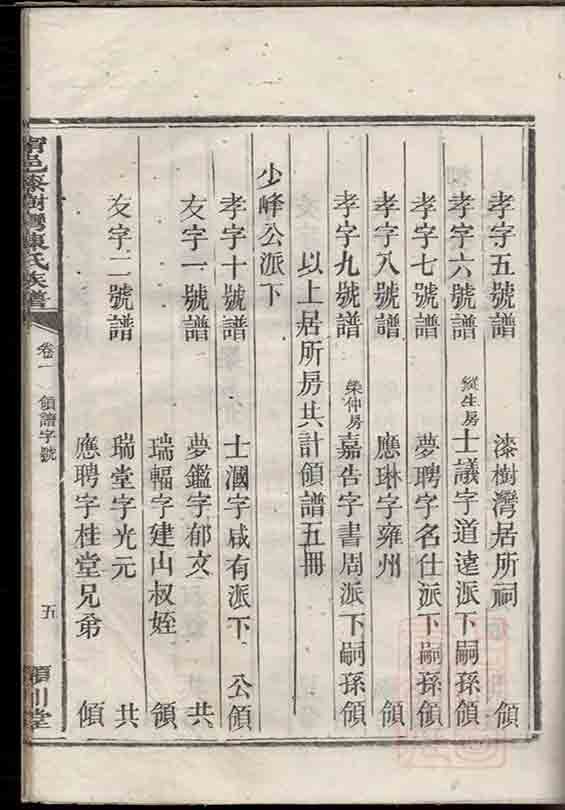 孝字五號譜 漆樹灣居所祠 領
孝字六號譜 縱生房 士議字道遠派下嗣孫領
孝字七號譜 夢聘字名仕派下嗣孫領
孝字八號譜 應琳字雍州 領
孝字九號譜 榮仲房 嘉告字書周派下嗣孫領
以上居所房共計領譜五冊
少峰公派下
孝字十號譜 士漍字咸有派下 公領
友字一號譜 夢鑑字郁文 共
瑞輻字建山叔姪 領
友字二號譜 瑞堂字光元 共
應聘字桂堂兄弟 領
甯邑漆樹灣陳氏族譜 卷一 領譜字號 五 潁川堂